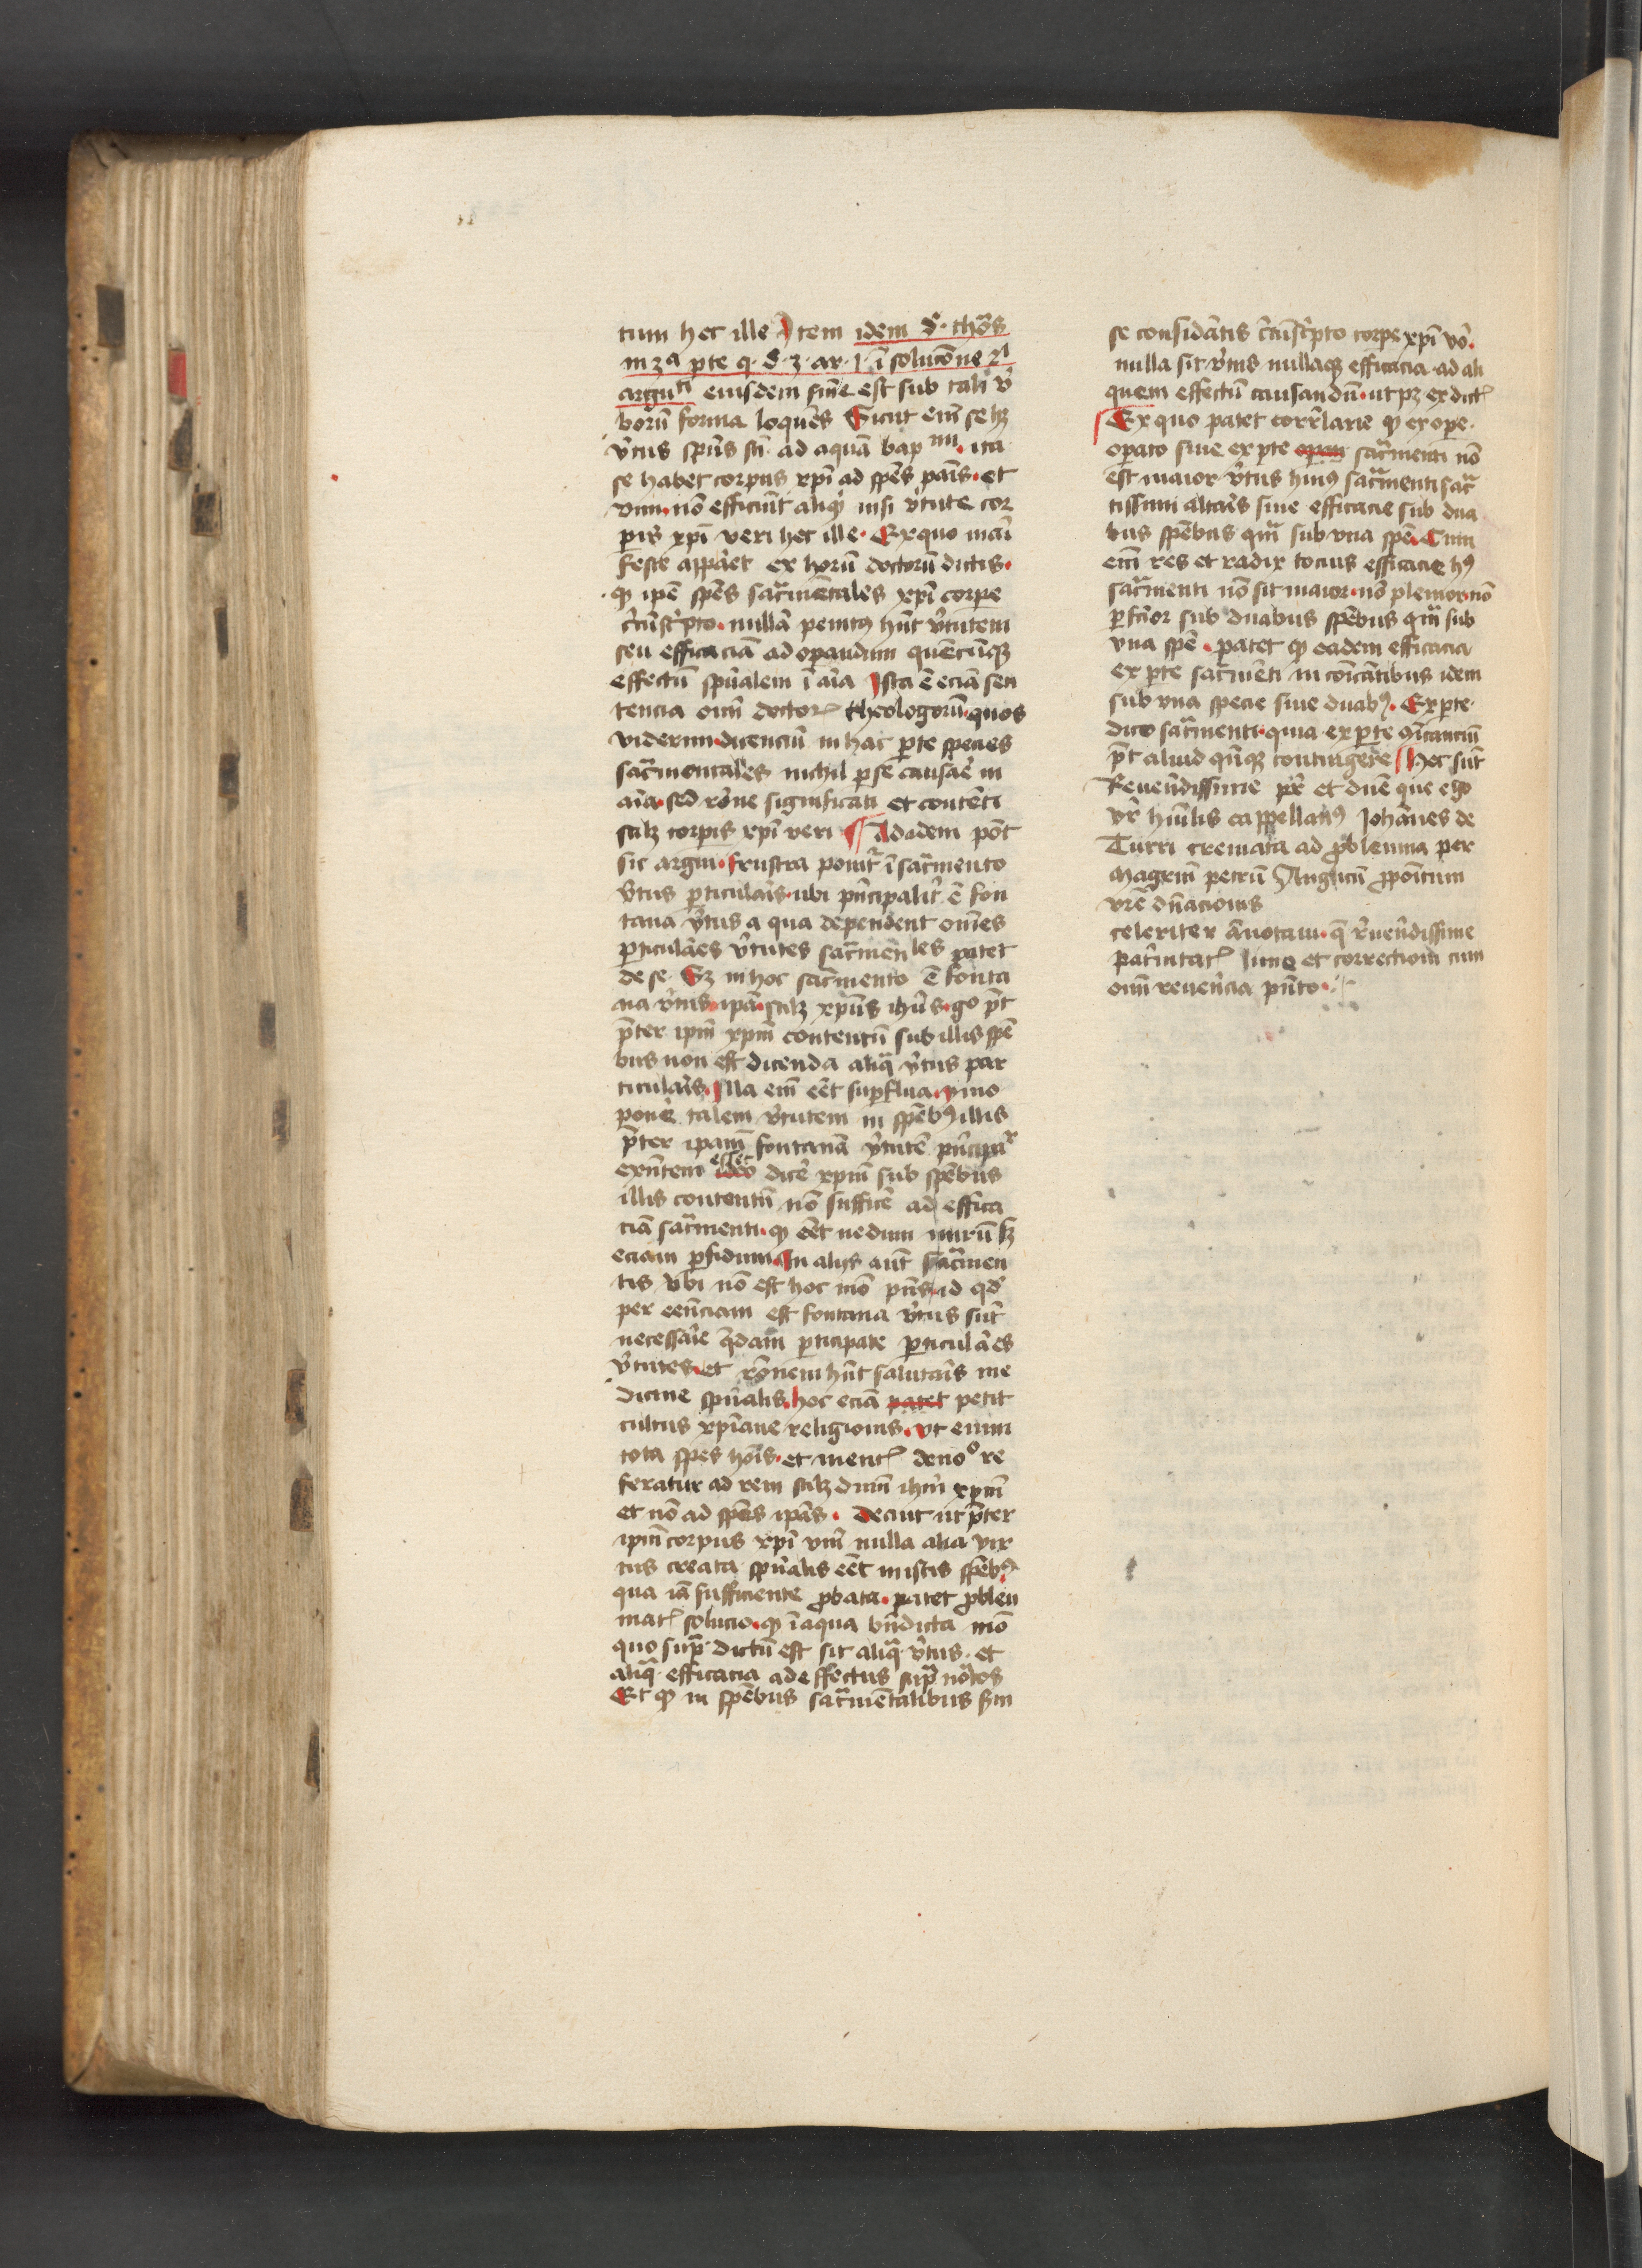 tum hec ille Item idem d̕. thōs
in 3ᵃ p̱te q. d. 3. ar. 1. ī soluc̄one 2ⁱ
arguᵗⁱ eiusdem sn̄ie est sub tali v̕
borū forma loquēs Sicut em̄ se hꝫ
v̕tus sp̄us sc̄i ad aquā bapᵐⁱ. ita
se habet corpus xp̄i ad sp̄es pāis. et
vini. nō efficiūt aliqͥd nisi v̕tute cor
p̱is xp̄i veri hec ille. Ex quo māi
feste appāet ex horū doctorū dictis.
ꝙ ip̄e sp̄es sac̄mētales xp̄i corpe
c̄cūsc̄pto. nullā penitꝰ hn̄t v̕tutem
seu efficaciā ad op̱andum quēcūqꝫ
effectū sp̄ualem ī aīa Ista ē eciā sen
tencia oīm doctorꝝ theologorū. quos
viderim. dicenciū in hac p̱te species
sac̄mentales nichil p̱ se causāe in
aīa. sed rōne significati et contēti
scilꝫ corp̱is xp̄i veri ¶ Ad idem pōt
sic argui. frustra ponitᷣ ī sac̄mento
v̕tus p̱ticulāis. ubi pn̄cipalit̕ ē fon
tana v̕tus a qua dependent om̄es
p̱ticulāes v̕tutes sac̄mētales patet
de se. Sꝫ in hoc sac̄mento ē fonta
na v̕tus. ip̄a. scilꝫ xp̄us ih̄us. go p̄t
p̄ter ip̄m xp̄m contentū sub illis sp̄e
bus non est dicenda aliq̄ v̕tus par
ticulāis. Illa em̄ eēt sup̱flua. ymo
ponē talem v̕tutem in sp̄ebꝰ illis
p̄ter ip̄am fontanā v̕tutē pn̄cipaʳ
exn̄tem ideo esset dicē xp̄m sub sp̄ebus
illis contentū nō sufficē ad effica
ciā sac̄menti. ꝙ eēt nedum mirū sꝫ
eciam p̱fidum. In alijs aūt sac̄men
tis vbi nō est hoc mō pn̄s id qd̕
per eēnciam est fontana v̕tus sūt
necessāie q̄dam p̱ticipate p̱ticulāes
v̕tutes. et rōnem hn̄t salutāis me
dicine sp̄ualis. hoc eciā patet petit
cultus xp̄iane religionis. vt enim
tota spes hōis. et mentꝭ deuoᵒ re
feratur ad rem scilꝫ dn̄m ih̄m xp̄m
et nō ad sp̄es ip̄as. Decuit ut p̄ter
ip̄m corpus xp̄i vm̄ nulla alia vir
tus creata sp̄ualis eēt in istis sp̄ebꝰ
qua iā sufficiente ꝓbata. patet ꝓbleu
matꝭ solucio. ꝙ ī aqua bn̄dicta mō
quo sup̄. dictū est sit aliq̄. v̕tus. et
aliq̄. efficacia ad effectus sup̄ nōtos
Et ꝙ in sp̄ebus sac̄mētalibus s̄m
se considātis c̄cūsc̄pto corpe xp̄i vō.
nulla sit v̕tus nullaqꝫ efficacia ad ali
quem effectū causandū. ut pꝫ ex dictꝭ
Ex quo patet correlarie ꝙ ex ope.
operato siue ex p̱te opan sac̄menti nō
est maior v̕tus huiꝰ sac̄menti sac̄
tissimi altāis siue efficacie sub dua
bus sp̄ebus qm̄ sub vna sp̄e. Cum
em̄ res et radix tocius efficacie hꝰ
sac̄menti nō sit maior. nō plenior. nō
p̱fc̄ior sub duabus sp̄ebus qm̄ sub
vna sp̄e. patet ꝙ eadem efficacia
ex p̱te sac̄mēti in cōicātibus idem
sub vna specie siue duabꝰ. Ex p̱te.
dico sac̄menti. quia ex p̱te cōīcanciū
p̄t aliud qn̄qꝫ contingere Hec sūt
Reuen̄dissime pr̄ et dn̄e que ego
vr̄ hūilis cappellanꝰ Johānes de
Turri cremata ad ꝓbleuma per
Magr̄m petrū Anglicū ꝓpōitum
vrē dn̄acionis
celeriter ānotaui. q̄ r̄uen̄dissime
pat̄nitatꝭ lime et correctioni cum
oīm reuen̄cia pn̄to.